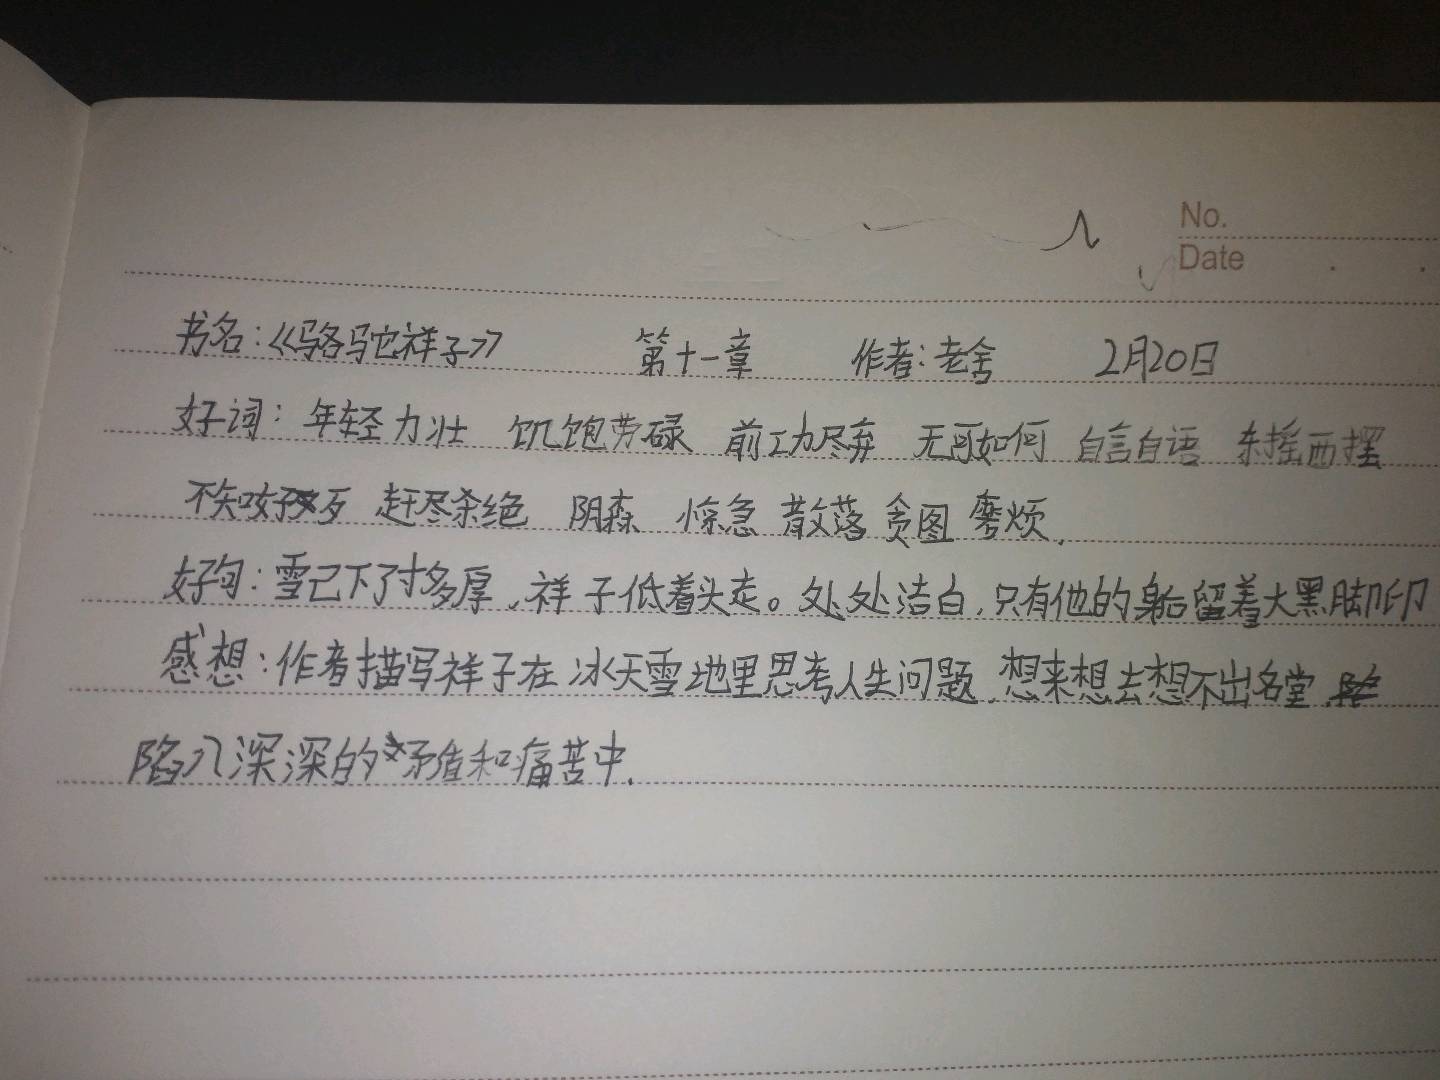 No.
Date
书名:《骆驼祥子》 第十一章 作者:老舍 2月20日
好词: 年轻力壮 饥饱劳碌 前功尽弃 无可如何 自言自语 东摇西摆
不知好歹 赶尽杀绝 阴森 惊急 散落 贪图 磨烦.
好句:雪已下了寸多厚,祥子低着头走。处处洁白,只有他的身后留着大黑脚印
感想:作者描写祥子在冰天雪地里思考人生问题,想来想去想不出名堂,
陷入深深的矛盾和痛苦中.